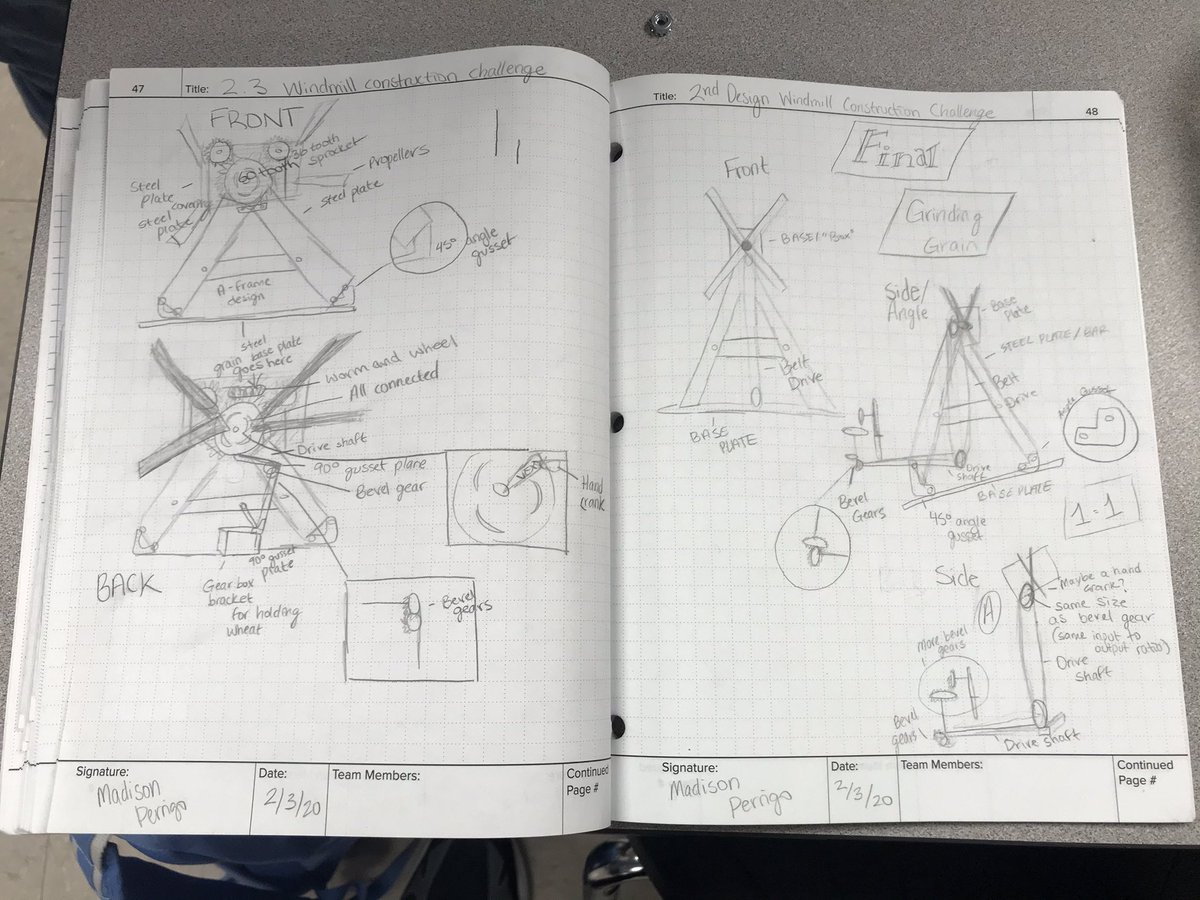 47
Title: 2.3 Windmill construction challenge
FRONT
36 tooth
sprocket
60 tooth
Propellers
Steel
plate
covering
steel
plate
steel plate
45° angle
gusset
A-frame
design
steel
base plate
grain
goes here
worm and wheel
All connected
Drive shaft
90° gusset plane
Bevel gear
VEX
Hand
crank
90° gusset
plate
BACK
Gear box
bracket
for holding
wheat
Bevel
gears
Signature:
Madison
Perrigo
Date:
2/3/20
Team Members:
Continued
Page #
Title: 2nd Design Windmill Construction Challenge
48
Final
Front
Grinding
Grain
BASE/"Box"
Belt
Drive
BASE
PLATE
Side/
Angle
Base
plate
STEEL PLATE/BAR
Belt
Drive
Angle Gusset
Drive
shaft
BASE PLATE
Bevel
Gears
45° angle
gusset
1:1
Side
A
Maybe a hand
crank?
same size
as bevel gear
(same input to
output ratio)
More bevel
gears
Drive
shaft
Bevel
gears
Drive shaft
Signature:
Madison
Perrigo
Date:
2/3/20
Team Members:
Continued
Page #